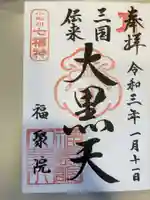 奉拝
令和三年一月十一日
三国
伝来
大黒天
七福神
福聚院